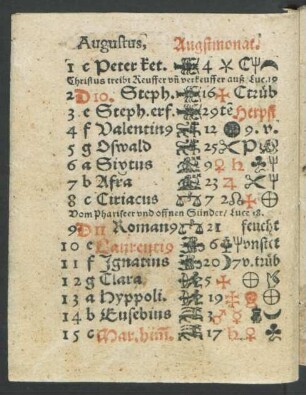 Augustus, Augstmonat.
1 c Peter ket. 4
Christus treibt Keuffer vñ verkeuffer auß, Luc. 19
2 D 10. Steph. 16 Trüb
3 e Steph. erf. 29 te Herpst
4 f Valentin9 12 9. v.
5 g Oswald 25
6 a Sixtus 9 ♀
7 b Afra 23
8 c Ciriacus 7
Vom Phariseer vnd offnen Sünder, Luce 18.
9 D 11 Roman9 21 feucht
10 e Laurenti9 6 vnstet
11 f Ignatius 20 v. trüb
12 g Clara 5
13 a Hyppoli. 19
14 b Eusebius 3
15 c Mar. him̃. 17 ♀